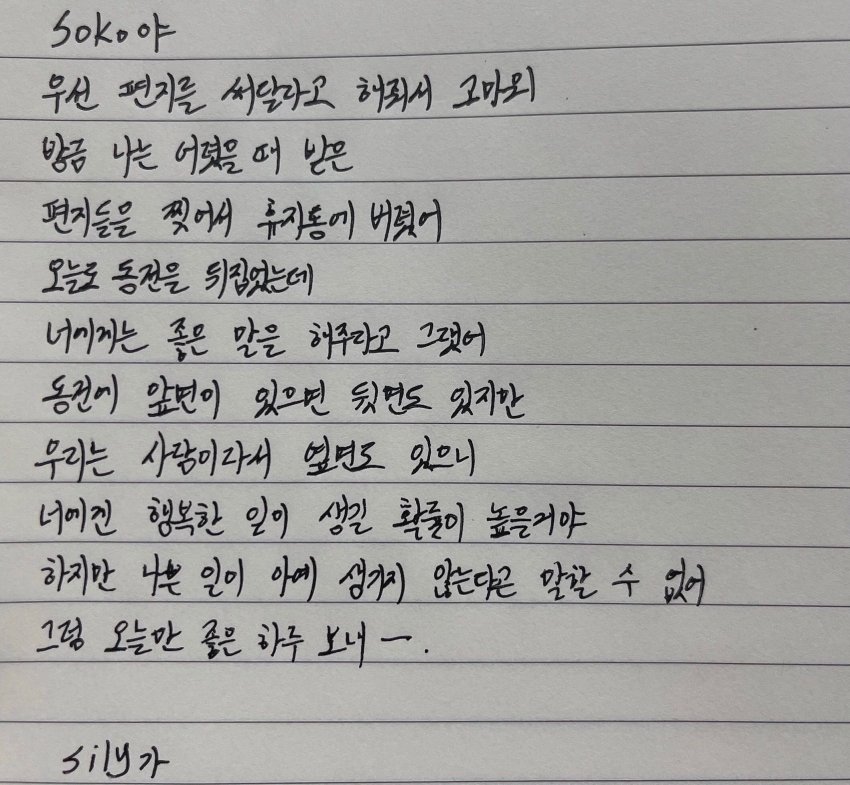 soko야
우선 편지를 써달라고 해줘서 고마워
방금 나는 어렸을 때 받은
편지들을 찢어서 휴지통에 버렸어
오늘로 동전을 뒤집었는데
너에게는 좋은 말을 해주라고 그랬어
동전에 앞면이 있으면 뒷면도 있지만
우리는 사람이라서 옆면도 있으니
너에겐 행복한 일이 생길 확률이 높을거야
하지만 나쁜 일이 아예 생기지 않는다곤 말할 수 없어
그럼 오늘만 좋은 하루 보내 ㅡ.
sily가